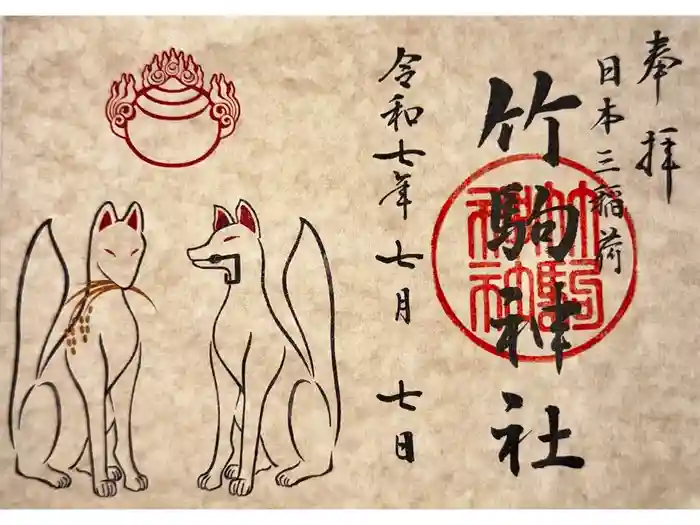 奉拝
日本三稲荷
竹駒神社
竹駒
神社
令和七年 七月 七日